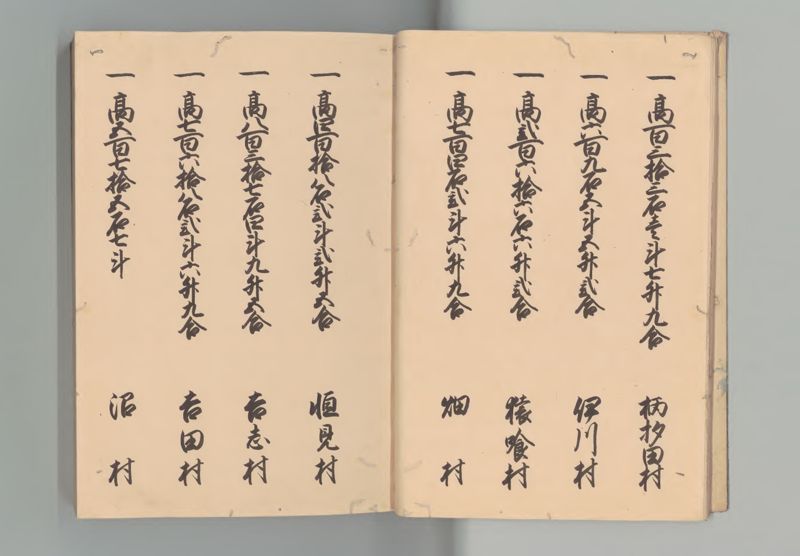 一高百三拾三石壱斗七升九合　柄杓田村
一高六百九石五斗五升弐合　伊川村
一高弐百六拾六石六升弐合　猿喰村
一高七百四石弐斗六升九合　畑村
一高四百拾八石弐斗弐升五合　恒見村
一高八百三拾七石四斗九升五合　吉志村
一高七百六拾八石弐斗六升九合　吉田村
一高五百七拾五石七斗　沼村